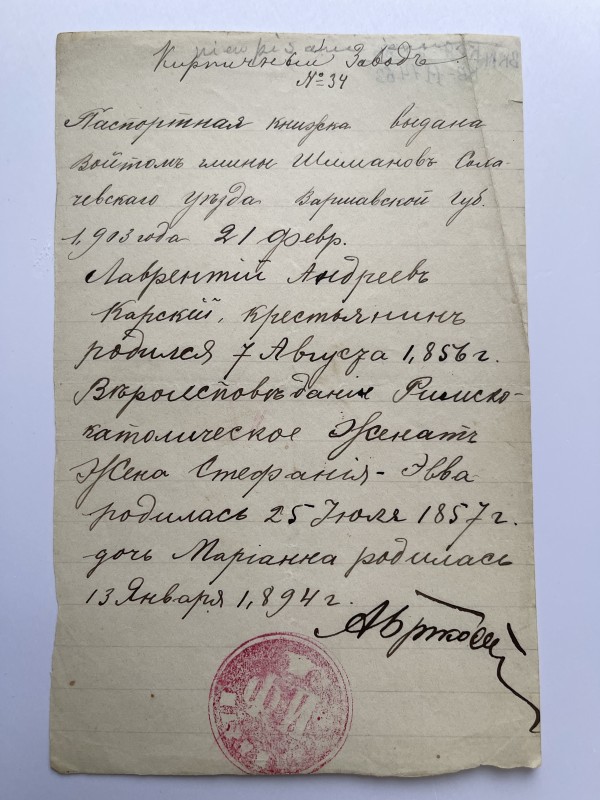 Кирпичный Заводъ
№ 34
Паспортная книжка выдана
Войтомъ гмины Шимановъ Соха-
чевскаго уѣзда Варшавской губ.
1,903 года 21 февр.
Лаврентій Андреевъ
Карскій, крестьянинъ
родился 7 Августа 1,856 г.
Вѣроисповѣданіе Римско-
католическое Женатъ
Жена Стефанія-Эвва
родилась 25 Іюля 1857 г.
дочь Маріанна родилась
13 Января 1,894 г.